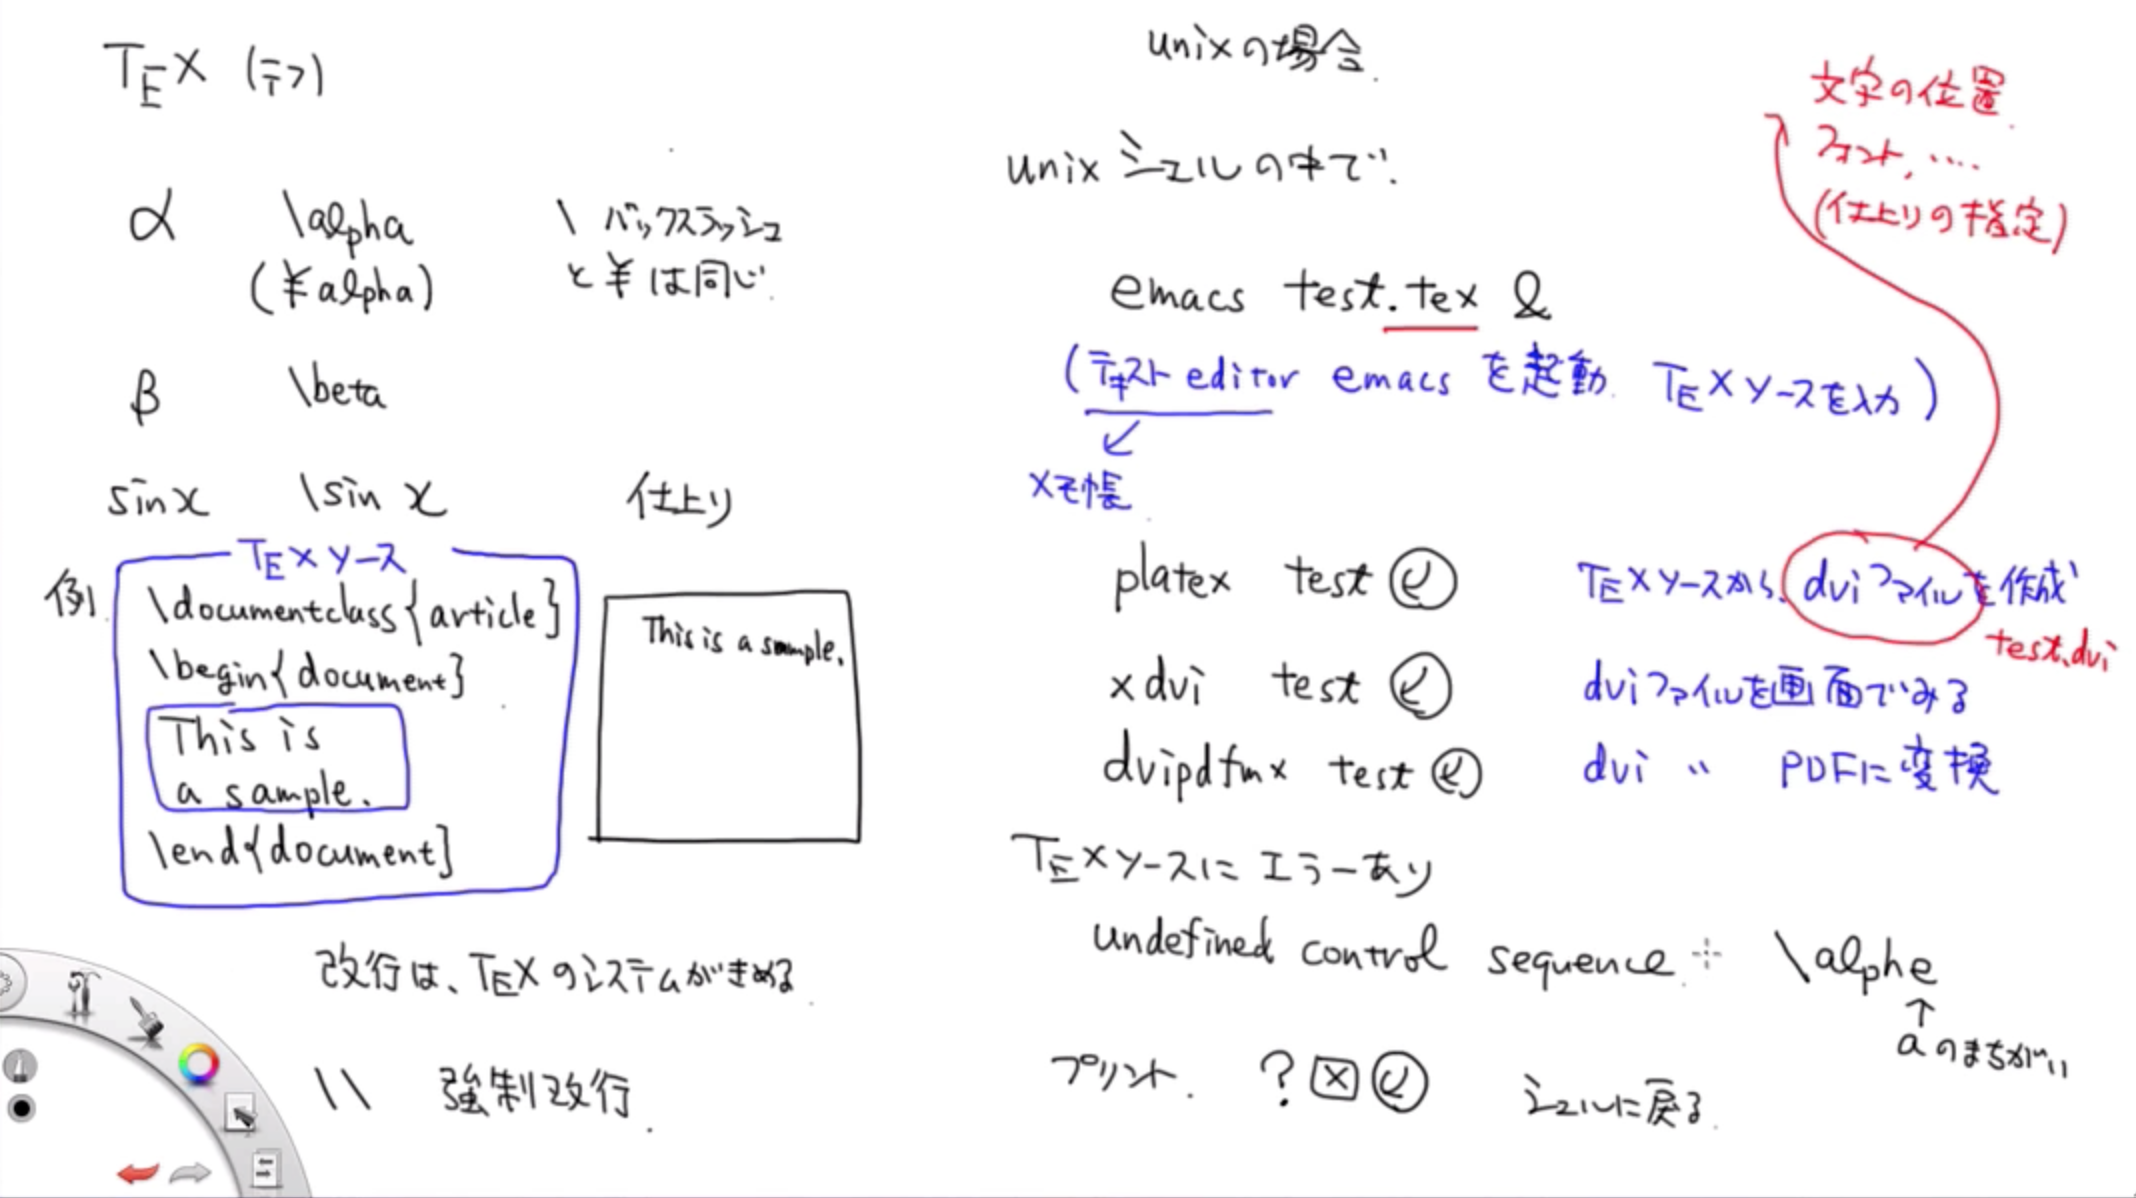 TEX (テフ)
α \alpha \ バックスラッシュ
(¥alpha) と¥は同じ.
β \beta
sin x \sin x 仕上り
例. TEXソース
\documentclass{article}
\begin{document}
This is
a sample.
\end{document}
This is a sample.
改行は、TEXのシステムがきめる
\\ 強制改行.
unixの場合.
unix シェルの中で.
emacs test.tex &
(テキスト editor emacs を起動. TEXソースを入力)
↙
メモ帳
platex test TEXソースから、dviファイルを作成
test.dvi
xdvi test dviファイルを画面でみる
dvipdfmx test dvi 〃 PDFに変換
文字の位置.
フォント, ....
(仕上りの指定)
TEXソースに エラーあり
undefined control sequence. \alphe
↑
aのまちがい
プリント. ? x シェルに戻る.